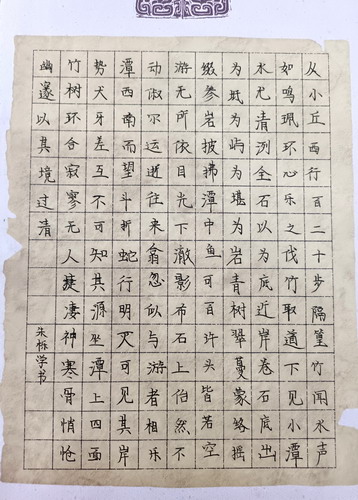 从小丘西行百二十步隔篁竹闻水声
如鸣珮环心乐之伐竹取道下见小潭
水尤清冽全石以为底近岸卷石底出
为坻为屿为堪为岩青树翠蔓蒙络摇
缀参岩披拂潭中鱼可百许头皆若空
游无所依日光下澈影布石上怡然不
动俶尔远逝往来翕忽似与游者相乐
潭西南而望斗折蛇行明灭可见其岸
势犬牙差互不可知其源坐潭上四面
竹树环合寂寥无人凄凄神寒骨悄怆
幽邃以其境过清
朱栎学书